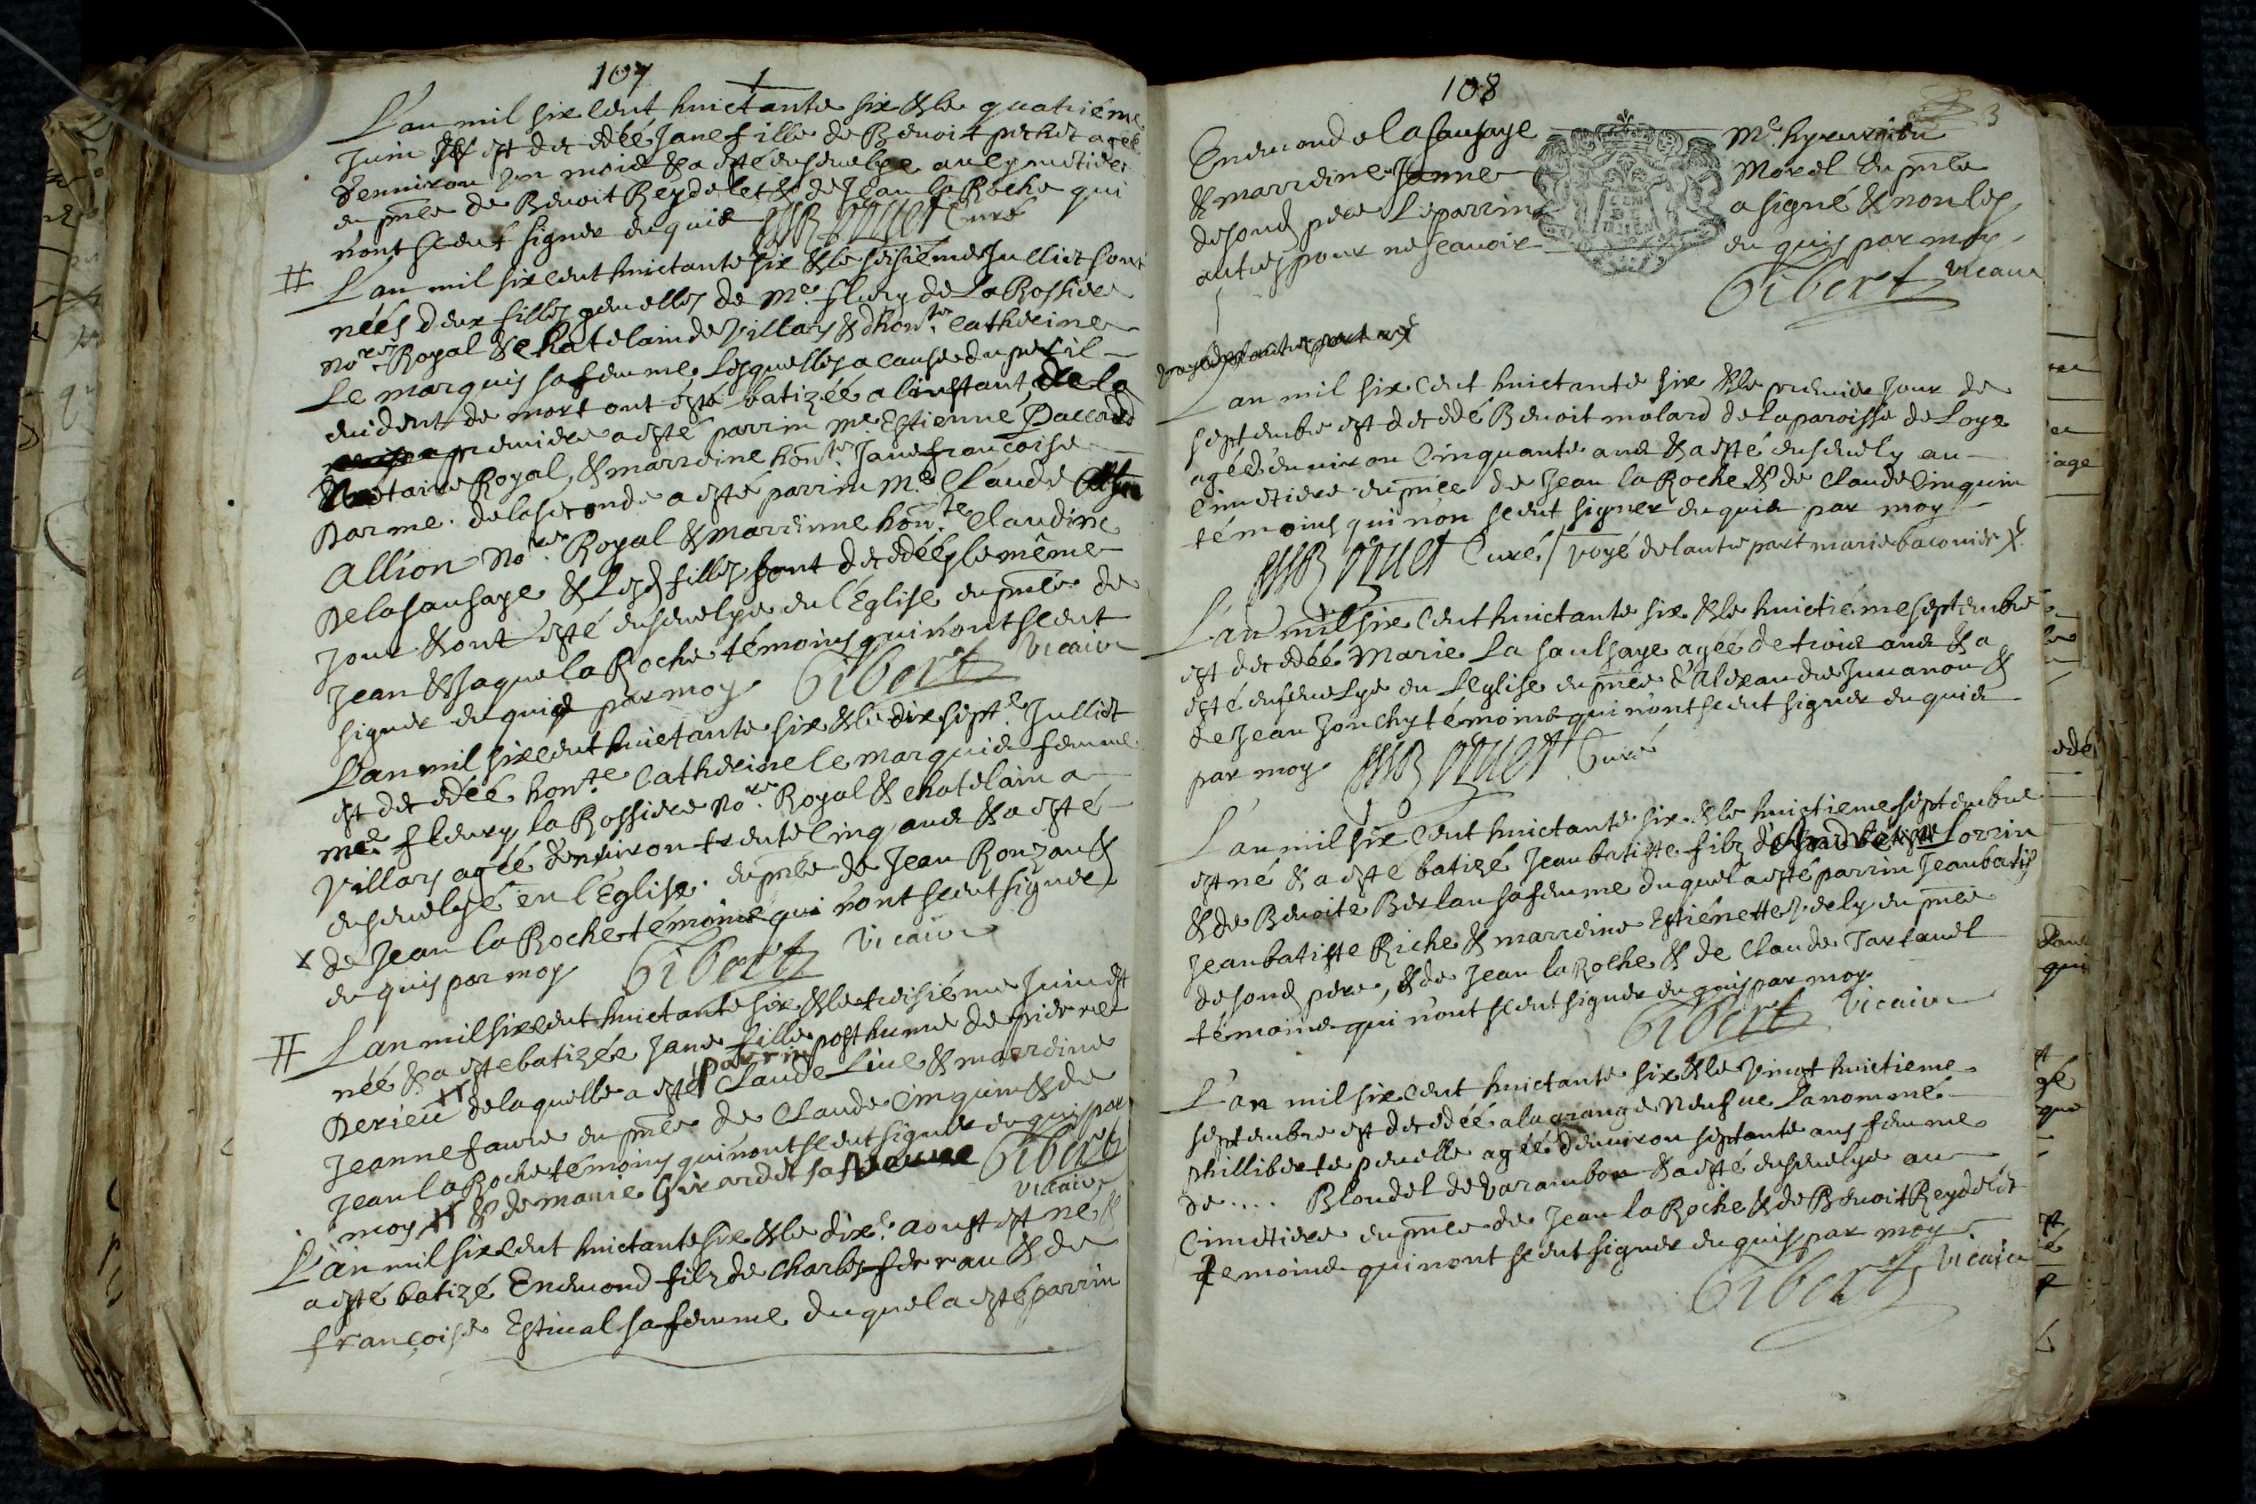 107
L'an mil six cent huictante six & le quatriéme
Juin est decedéé Jane fille de Benoit pechet agéé
d'environ un mois & a esté ensevelye au cymetiere
en pñce de Benoit Reydelet & de Jean la Roche qui
n'ont sceut signer enquis Curé
L'an mil six cent huictante six & le sesiéme Julliet sont
néés deux filles gemelles de Me. fleury de La Rossiere
Nore. Royal & chatelain de Villars & d'honte. Catherine
Le marquis sa femme Lesquelles a cause du peril
evident de mort ont esté batizéé a linstant, de la
premiere a esté parrin me Estienne Paccard
Notaire Royal, & marreine honte. Jane françoise
Darme. de la seconde a esté parrin Me. Claude
Allion Nore. Royal & marreinne honte. Claudine
De la sausaye & Lesd filles sont decedéés le même
Jour & ont esté ensevelye en l'Eglise en pñce de
Jean & Jaque la Roche témoins qui n'ont sceut
signer enquis par moy Gibert vicaire
L'an mil six cent huictante six & le dix sept.e Julliet
est decedéé hon.te Catherine le marquis femme
me. fleury la Rossiere Nore. Royal & chatelain a
Villars agéé d'environ trente cinq ans & a esté
ensevelye en l'Eglise. en pñce de Jean Ronzan &
x de Jean la Roche témoins qui n'ont sceut signer
enquis par moy Gibert vicaire
L'an mil six cent huictante six & le treisiéme Juin est
néé & a esté batizéé Jane fille posthume de pierre
Derieu de laquelle a esté parrin Claude Live & marreine
Jeanne faure en pñce de Claude Cinquin & de
Jean la Roche témoins qui n'ont sceut signer enquis par
moy & de marie Girardet sa veuve Gibert
vicaire
L'an mil six cent huictante six & le dixe. aoust est né &
a esté batizé Enemond filz de Charles ferran & de
françoise Estival sa femme duquel a esté parrin
108
3
Enemond de la sausaye
& marreine Janne
desond pere Le parrin
autres pour ne scavoir
Morel En pñce
a signé & non les
enquis par moy
Gibert vicaire
L'an mil six cent huictante six & le premier Jour de
septembre est decedé Benoit molard de la paroisse de Loye
agéé d'environ Cinquante ans & a esté ensevely au
Cimetiere en pñce de Jean la Roche & de Claude Cinquin
témoins qui n'on sceut signer enquis par moy
Curé / voyé de l'autre part marie baconier
L'an mil six cent huictante six & le huictiéme septembre
est decedéé Marie La saulsaye agéé de trois ans & a
esté ensevelye en L'eglise en pñce d'Alexandre Juvanon &
de Jean Jonchy témoins qui n'ont sceut signer enquis
par moy Curé
L'an mil six cent huictante six & le huictieme septembre
est né & a esté batizé Jean batiste filz d' Lorrin
& de Benoite Berlan sa femme duquel a esté parrin
Jean batiste Riche & marreine Estiénette Vely en pñce
desond pere, & de Jean la Roche & de Claude Tartavel
témoins qui n'ont sceut signer enquis par moy
Gibert vicaire
L'an mil six cent huictante six & le vingt huictieme
septembre est decedéé a la grange Neufve La nommé
phillibérte pevelle agéé d'environ septante ans femme
de .... Blondel de Varambon & a esté ensevelye au
Cimetiere en pñce de Jean la Roche & de Benoit Reydelet
temoins qui n'ont sceut signer enquis par moy
Gibert vicaire